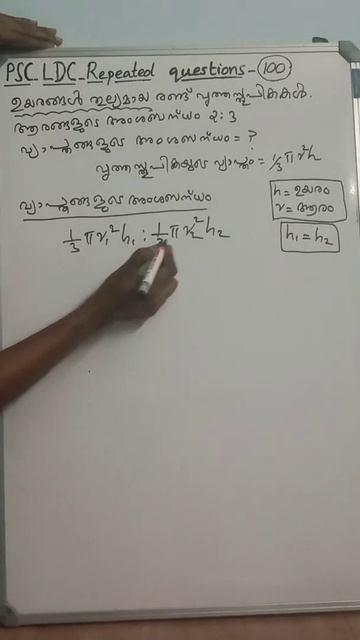 PSC LDC Repeated questions - 100
ഉയരങ്ങൾ തുല്യമായ രണ്ട് വൃത്തസ്തൂപികകൾ.
ആരങ്ങളുടെ അംശബന്ധം 2:3
വ്യാപ്തങ്ങളുടെ അംശബന്ധം = ?
വൃത്തസ്തൂപികയുടെ വ്യാപ്തം = 1/3 π r²h
വ്യാപ്തങ്ങളുടെ അംശബന്ധം
h = ഉയരം
r = ആരം
1/3 π r₁² h₁ : 1/3 π r₂² h₂
h₁ = h₂